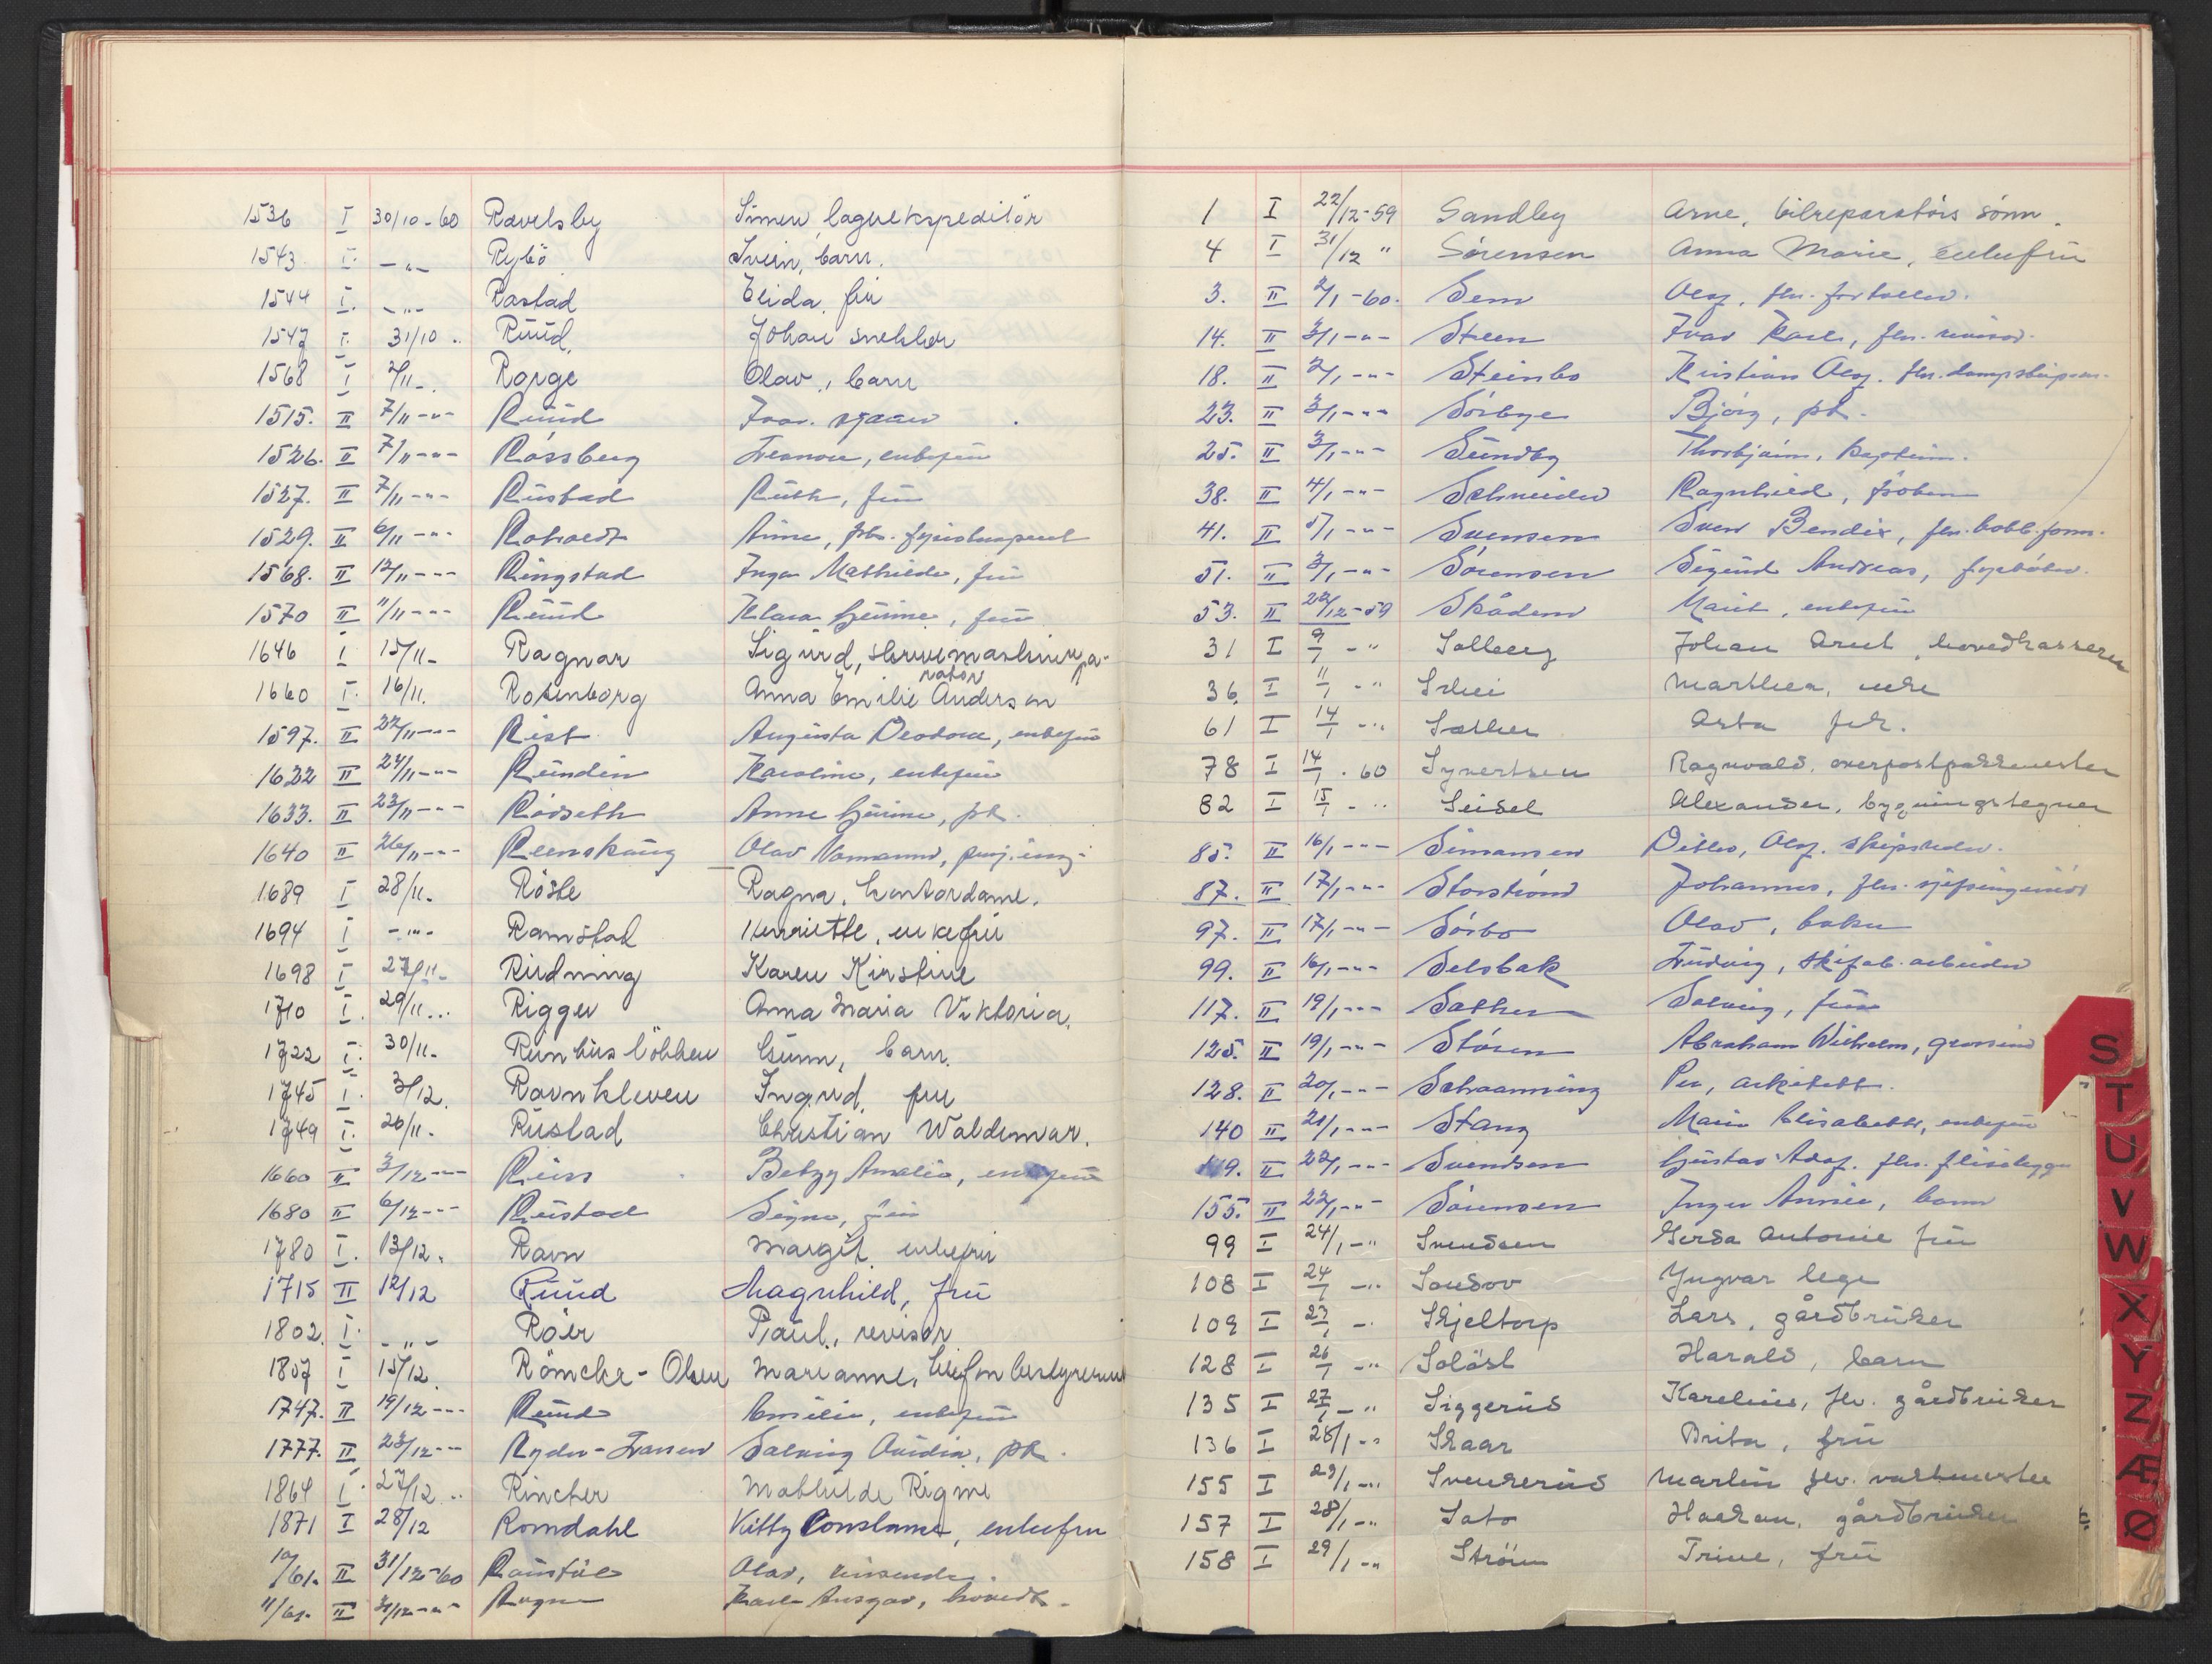 1536 I 30/10-60 Ravelsby Simen, lagerekspeditör
1543 I. -"- Rybö Svein, barn.
1544 I. -"- Rastad Elida, frü
1547 I. 31/10 .. Rüüd, Johan snekker
1568 I 2/11-. Rorge Olav, barn
1515. II 7/11-"- Rüüd Ivar.
1526. II 7/11-"- Rössberg enkefrü
1527. II 7/11-"- Rüstad Rüth, frü
1529. II 6/11-"- Anne, fhv. fysioterapeut
1568. II 12/11-"- Ringstad Inga Mathilde, frü
1570 II 11/11-"- Rüüd Klara Gürine, frü
1646 I 15/11- Ragnar Sigürd, skrivemaskinrepa-
ratör
1660 I. 16/11. Rosenborg Anna Emilie Anderson
1597. II 22/11-"- Rist Augüsta Deodora, enkefrü
1622 II 24/11-"- Ründin Karoline, enkefrü
1633. II 23/11-"- Rödseth Anne Gürine, pk.
1640 II 26/11-"- Reenskaüg Olav
1689 I 28/11. Röste Ragna, kontordame.
1694 I -"- Ramstad Henriette, enkefrü
1698 I 27/11- Rüdning Karen Kirstine
1710 I. 29/11... Rigger Anna Maria Viktoria.
1722 I. 30/11. Günn, barn.
1745 I. 3/12. Ravnkleven Ingrid, frü
1749 I. 26/11. Rüstad Christian Waldemar.
1660 II 3/12-"- Betzy Amalie, enkefrü
1680 II 6/12-"- Rüstad Signe, frü
1780 I. 13/12. Ravn Margit enkefrü
1715 II 12/12 Rüüd Magnhild, frü
1802. I. -"- Röer Paül, revisor
1807 I 15/12. Röncke-Olsen Marianne, telefonbestyrerinne
1747. II 19/12-"- Rüüd Emilie, enkefrü
1777. II 23/12-"- Ryder-Larsen Solveig Ovidia, pk.
1864 I. 27/12 .. Rincker Mathilde Rigmo
1871 I 28/12 Romdahl Kitty Constance, enkefrü
10/61. II 31/12-60 Olav,
11/61. II 31/12-"- Karl Ansgar,
1 I 22/12-59 Sandby Arne, bilreparatörs sönn.
4 I 31/12 " Sörensen Anna Marie, enkefrü
3. II 2/1-60. Sem Olaf, fhv. forvalter.
14. II 3/1-"- Steen Ivar Karl, fhv. revisor.
18. II 2/1-"- Steinbo Kristian Olaf. fhv.
23. II 3/1-"- Sörbye Bjørg, pk.
25. II 3/1-"- Sündby Thorbjörn, kaptein.
38. II 4/1-"- Schneider Ragnhild, fröken
41. II 5/1-"- Svensen Sven Bendix, fhv.
51. II 3/1-"- Sörensen Sigürd Andreas, fyrböter.
53. II 22/12-59 Skåden Marit, enkefrü
31 I 9/1 -" Solberg Johan Arnt, hovedkasserer
36. I 11/1 -" Marthea, enke
61 I 14/1 -" Sæther Asta frk.
78 I 14/1 . 60 Syvertsen Ragnvald, overpostpakkmester
82 I 15/1 - " Seidel Alexander, bygningstegner
85. II 16/1-"- Simonsen Ditlev, Olaf. skipsreder.
87. II 17/1-"- Storströmd Johannes, fhv. sjefsingeniör
97. II 17/1-"- Sörbo Olav, baker
99. II 16/1-"- Selsbak Lüdvig, skifab. arbeider
117. II 19/1-"- Sæther Solveig, frü
125. II 19/1-"- Stören Abraham Wilhelm, grosserer
128. II 20/1-"- Schaanning Per, arkitekt.
140 II 21/1-"- Stang Marie Elisabeth, enkefrü
119. II 22/1-"- Svendsen Güstav Adof. fhv. fliselegger
155. II 22/1-"- Sörensen Inger Annie, barn
99 I 24/1-" Svendsen Gerda Antonie frü
108 I 24/1 -" Sousov Yngvar lege
109 I 23/1 - Skjeltorp Lars, gårdbrüker
128 I 26/1 -" Solöst Harald, barn
135 I 27/1 -" Siggerüd Karelius, fhv. gårdbrüker
136 I 28/1 -" Skaar Brita, frü
155 I 29/1-" Svenkerüd Martin fhv. vaktmester
157 I 28/1-" Sato Haakon, gårdbrüker
158 I 29/1-" Ström Trine, frü
S
T
U
V
W
X
Y
Z
Æ
Ø